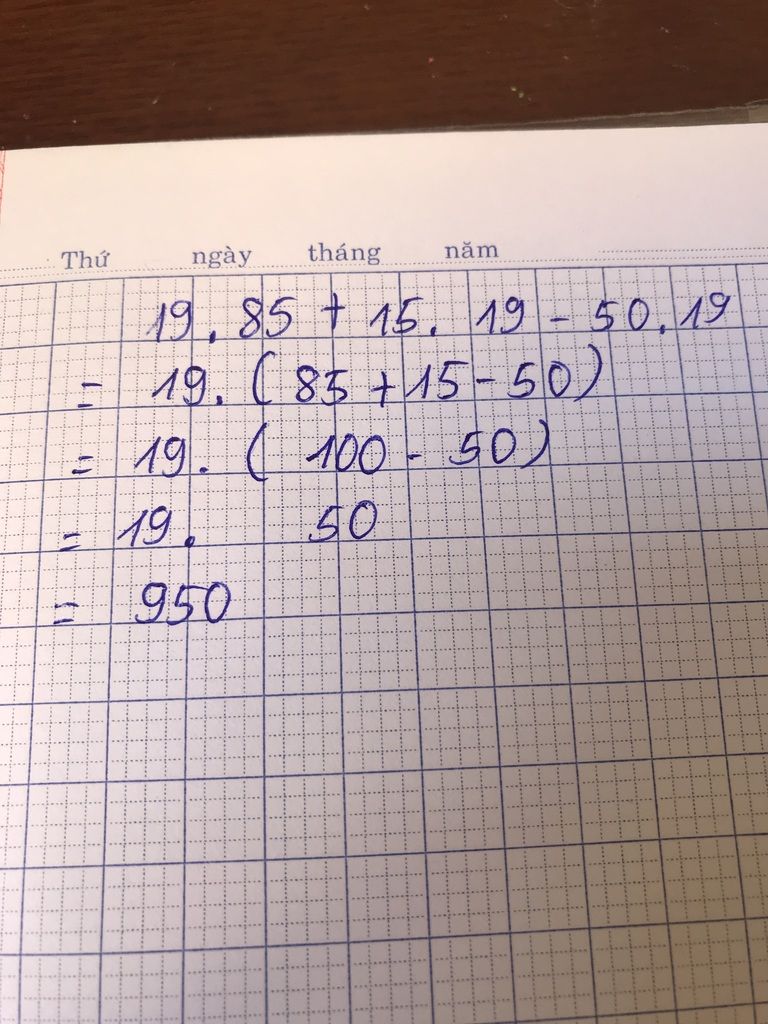 Thứ ngày tháng năm
19 . 85 + 15 . 19 - 50 . 19
= 19 . ( 85 + 15 - 50 )
= 19 . ( 100 - 50 )
= 19 . 50
= 950